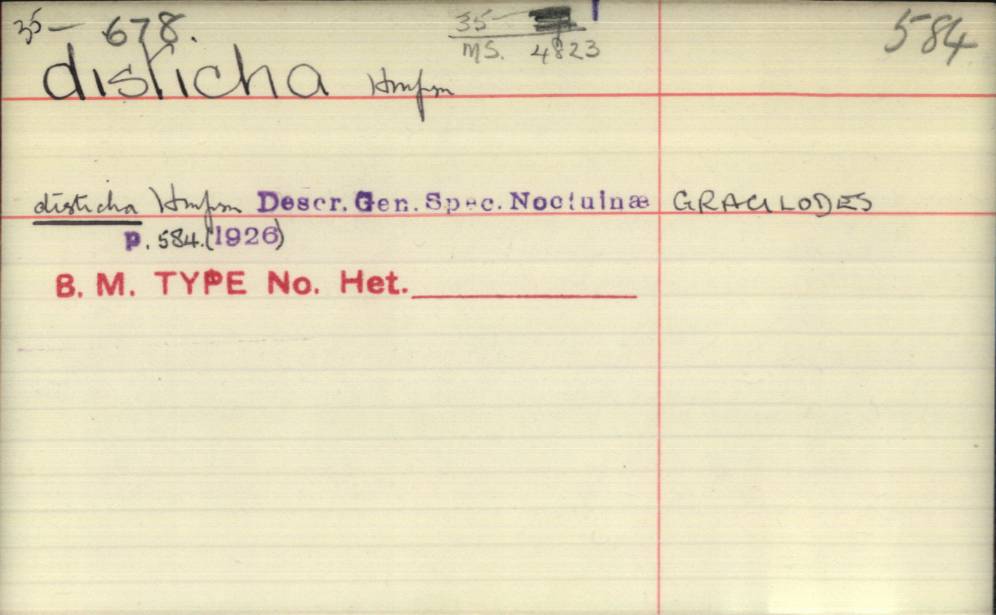 35 - 678. 35 584
MS. 4823
disticha Hmpsn
disticha Hmpsn Descr. Gen. Spec. Noctuinæ GRACILODES
p. 584. (1926)
B. M. TYPE No. Het.